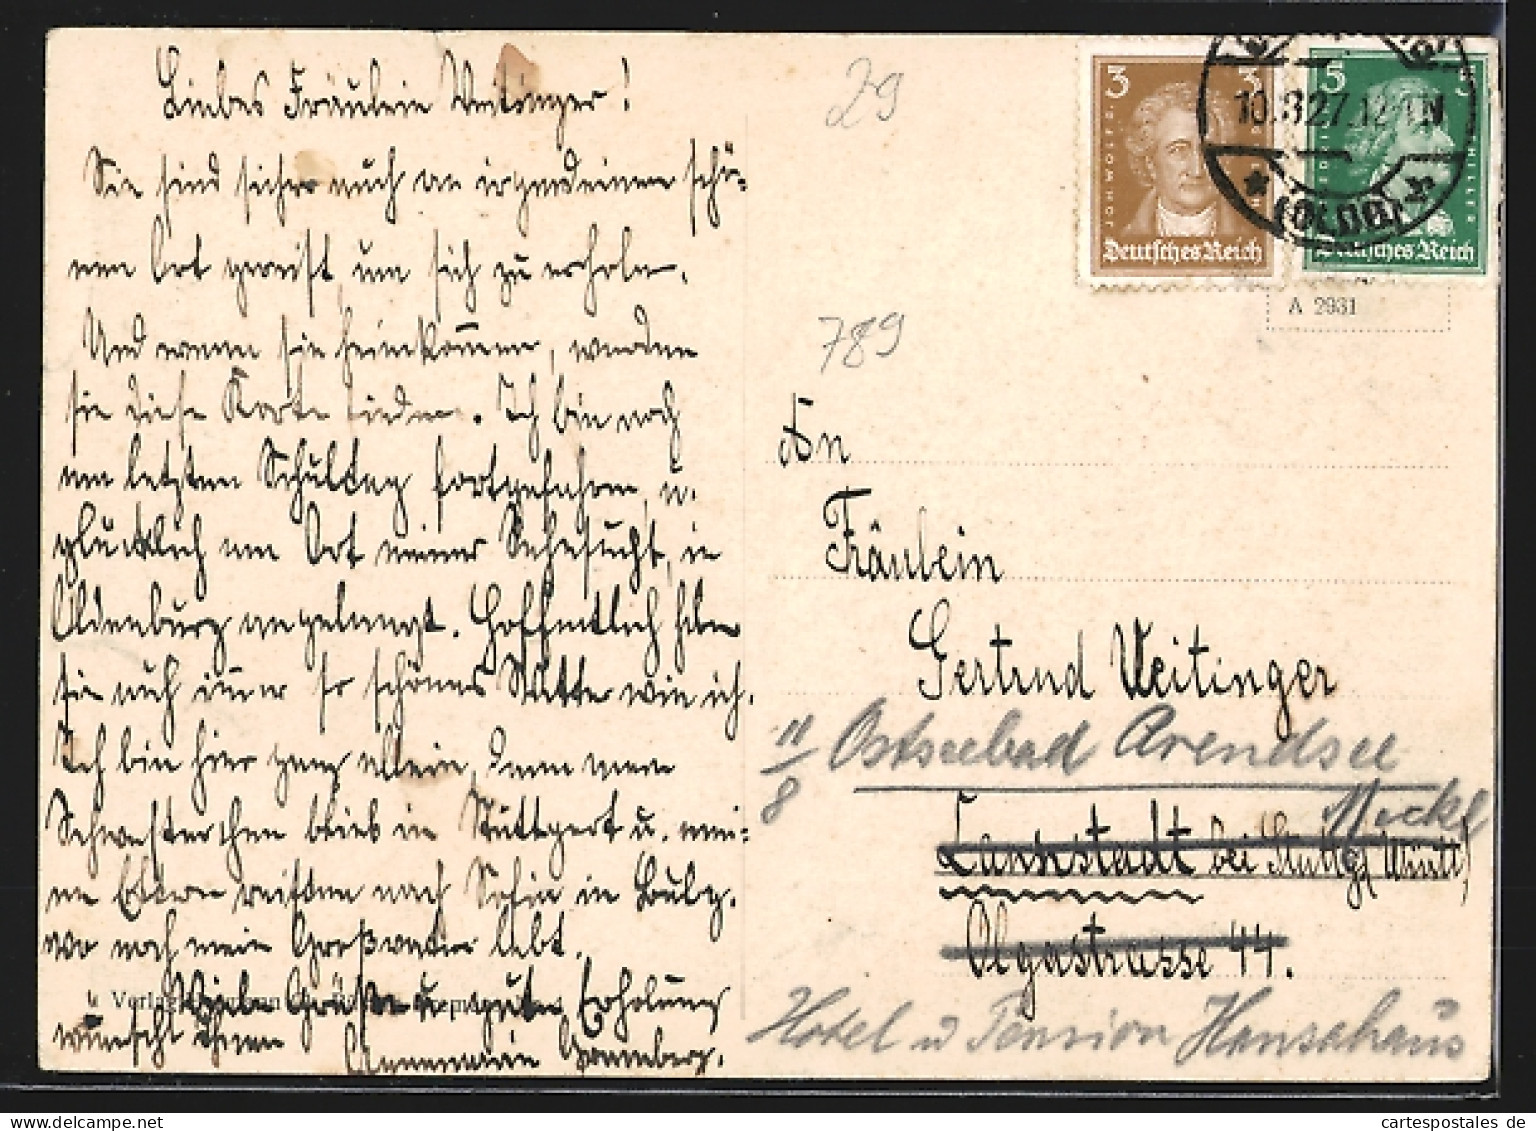 Liebes Fräulein Veitinger!
Sie sind sicher auch an irgend einen schö-
nen Ort gereist, um sich zu erholen.
Und wenn sie heimkommen, werden
sie diese Karte finden. Ich bin noch
am letzten Schultag fortgefahren, u.
glücklich am Ort meiner Sehnsucht, in
Oldenburg angelangt. Hoffentlich haben
sie auch immer so schönes Wetter wie ich.
Ich bin hier ganz allein, denn mein
Schwesterchen blieb in Stuttgart u. mei-
ne Eltern reisten nach Sofia in Bulg.
wo noch mein Großvater lebt.
Viele Grüße u. gute Erholung
wünscht Ihnen
Annemarie
Verlag
29
789
3 3
Deutsches Reich
5
Deutsches Reich
10.8.27.12-1N
(OLDB)
A 2931
An
Fräulein
Gertrud Veitinger
11/8 Ostseebad Arendsee
Meckl
Cannstadt bei Stuttg. (Württ)
Olgastrasse 44.
Hotel u Pension Hansahaus
cartespostales de